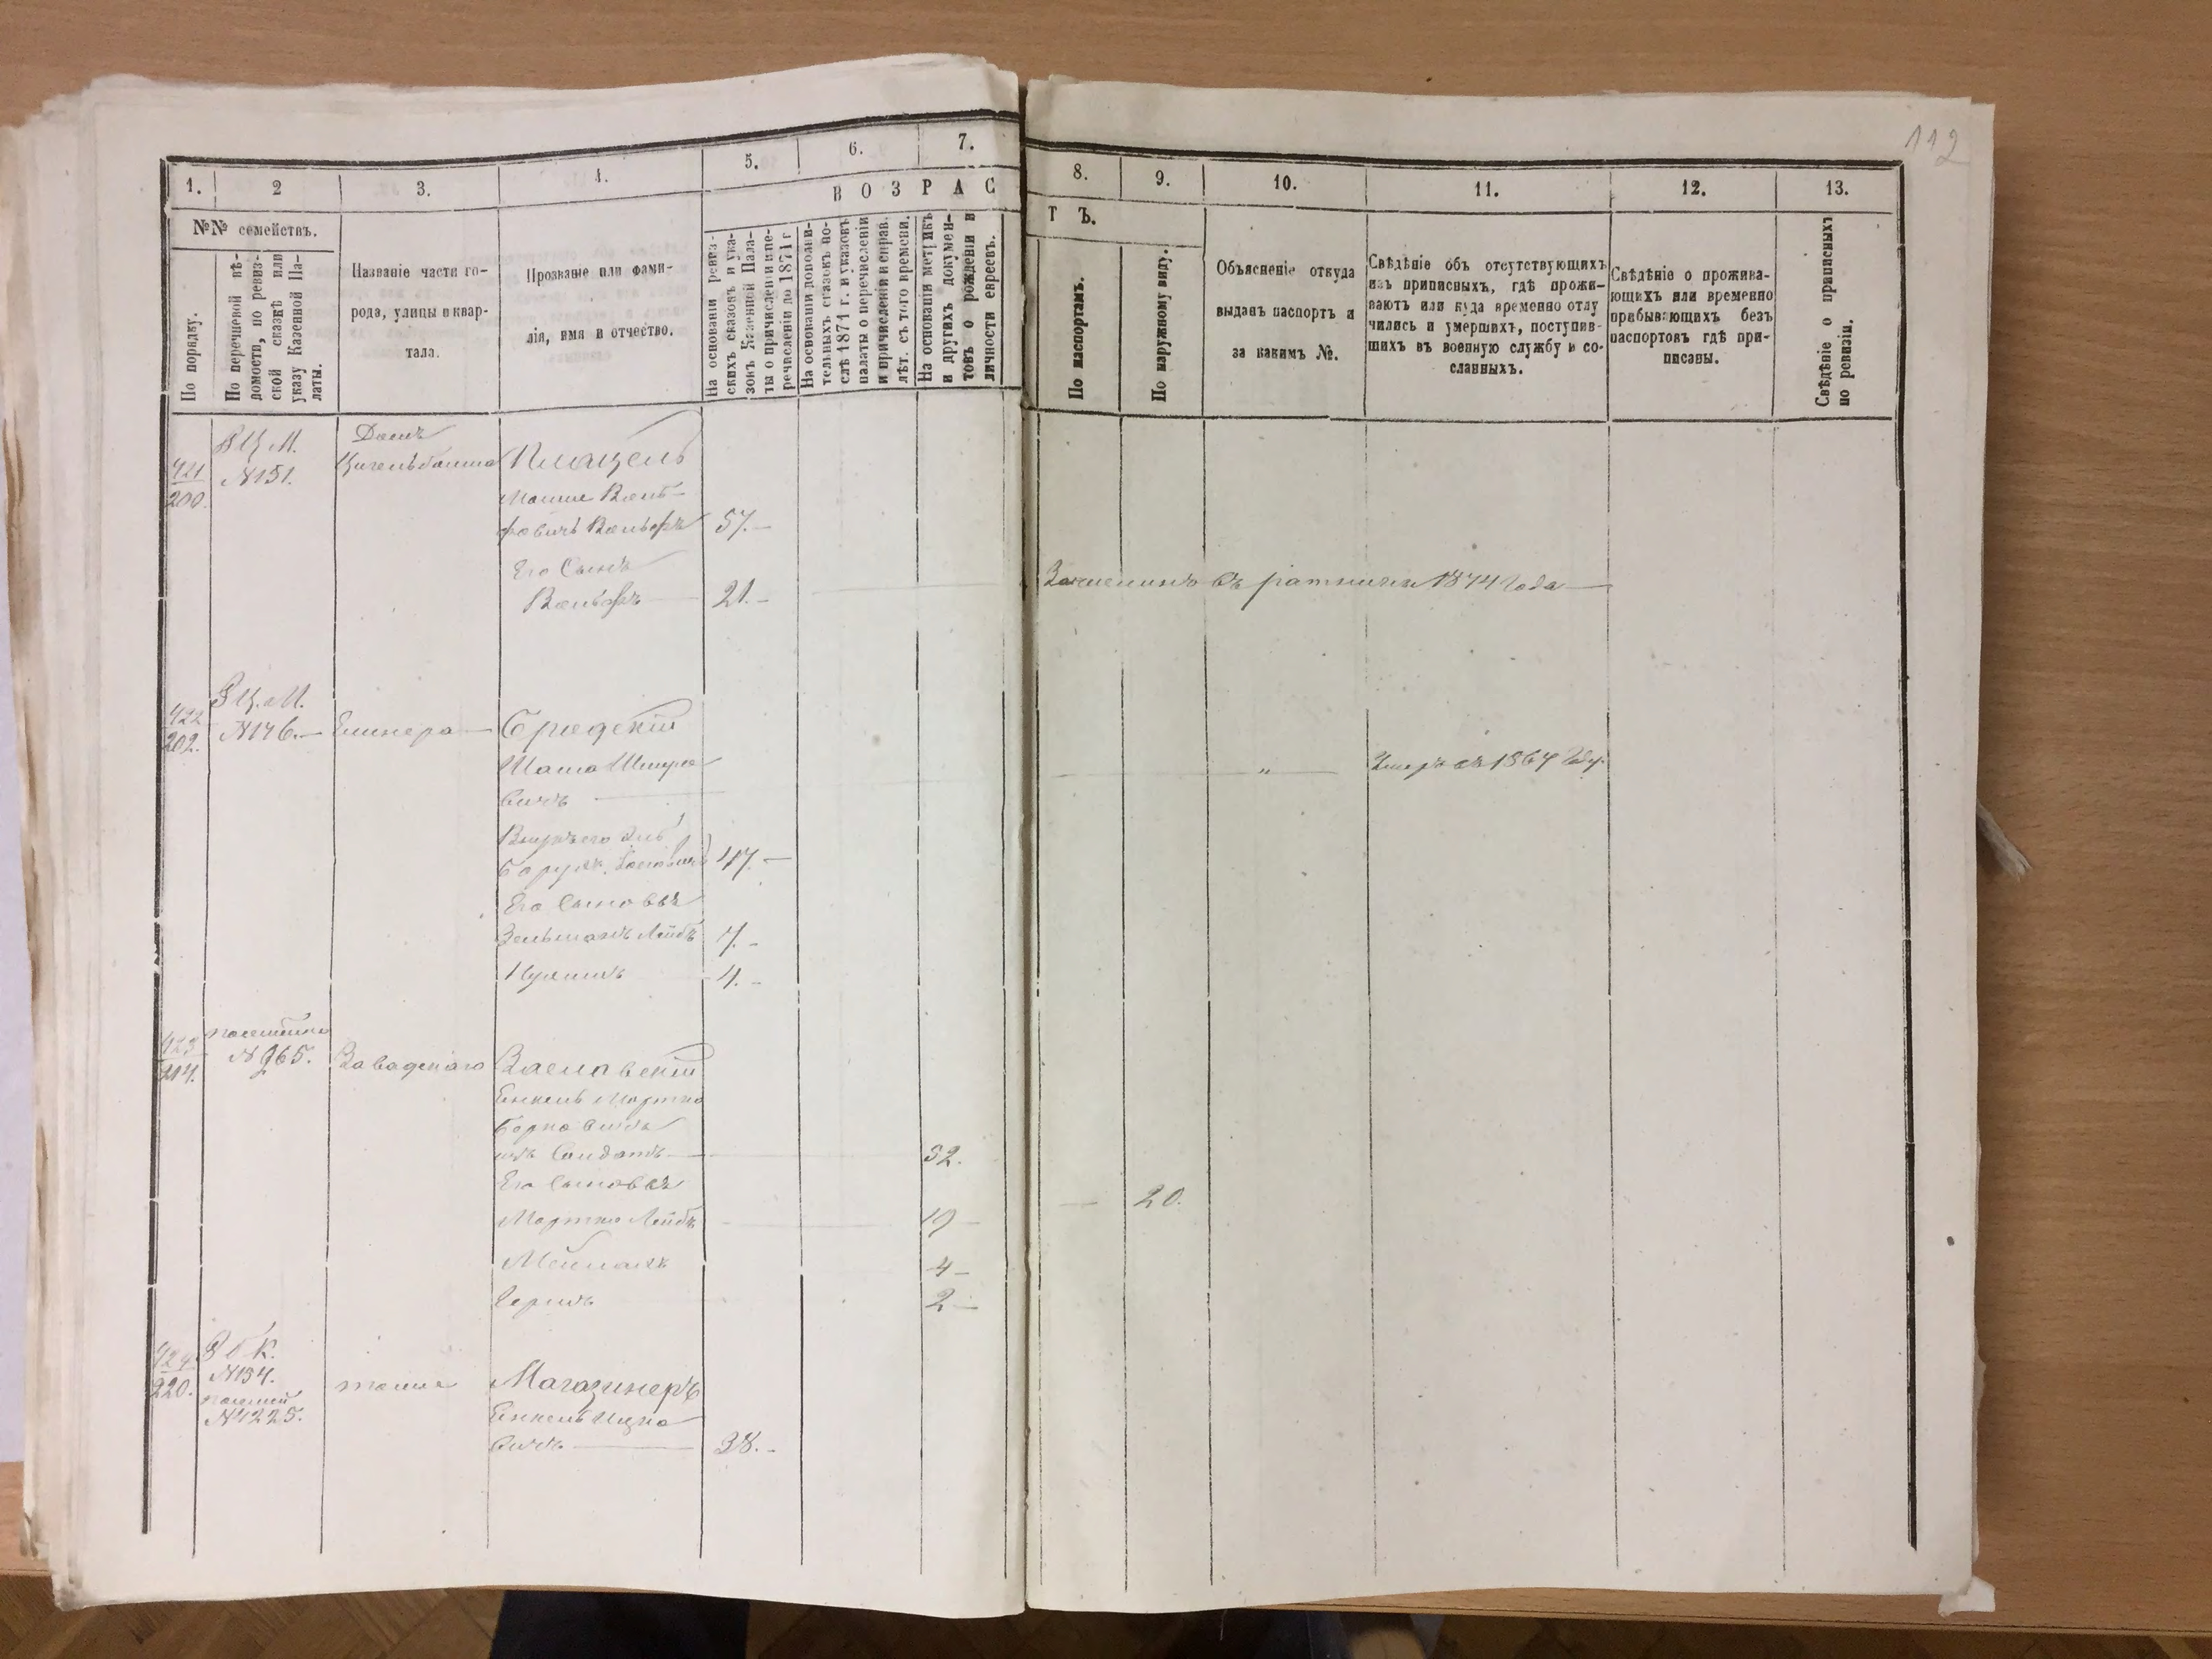 112
1.
2
3.
4.
5.
6.
7.
8.
9.
10.
11.
12.
13.
В О З Р А С
Т Ъ.
№№ семействъ.
По порядку.
По перечневой вѣ-
домости, по ревиз-
ской сказкѣ или
указу Казенной Па-
латы.
Названіе части го-
рода, улицы и квар-
тала.
Прозваніе или фами-
лія, имя и отчество.
На основаніи ревиз-
скихъ сказокъ и ука-
зовъ Казенной Пала-
ты о причисленіи и пе-
речисленіи до 1871 г.
На основаніи дополни-
тельныхъ сказокъ по-
слѣ 1871 г. и указовъ
палаты о перечисленіи
и причисленіи и справ.
лѣт. съ того времени.
На основаніи метрикъ
и другихъ докумен-
товъ о рожденіи и
личности евреевъ.
По паспортамъ.
По наружному виду.
Объясненіе откуда
выданъ паспортъ и
за какимъ №.
Свѣдѣніе объ отсутствующихъ
изъ приписныхъ, гдѣ прожи-
ваютъ или куда временно отлу
чились и умершихъ, поступив-
шихъ въ военную службу и со-
сланныхъ.
Свѣдѣніе о прожива-
ющихъ или временно
пребывающихъ безъ
паспортовъ гдѣ при-
писаны.
Свѣдѣніе о приписныхъ
по ревизіи.
421
200.
Б Ц М.
№151.
Домъ
Цигельбаима
Плоцель
Мошше Вольфовичъ Вольфъ 57.—
Его Сынъ
Вольфъ — 21.— Зачисленъ въ ратники 1874 Года —
422
202.
Б Ц. М.
№176.—
Бродскій
вичъ — „ — Умеръ въ 1867 Году.
47.—
Его Сыновья
Зельманъ Лейбъ 7.—
4.—
423
214.
№265.
Завадскаго
Заславскій
Енкель Мортко
Берковичъ
изъ Солдатъ — 52.
Его Сыновья
Мортко Лейбъ — 19 — 20.
4—
2—
424
220.
Б б К.
№154.
№1225.
тоже
Магазинеръ
Енкель Ицко
вичъ — 38.—